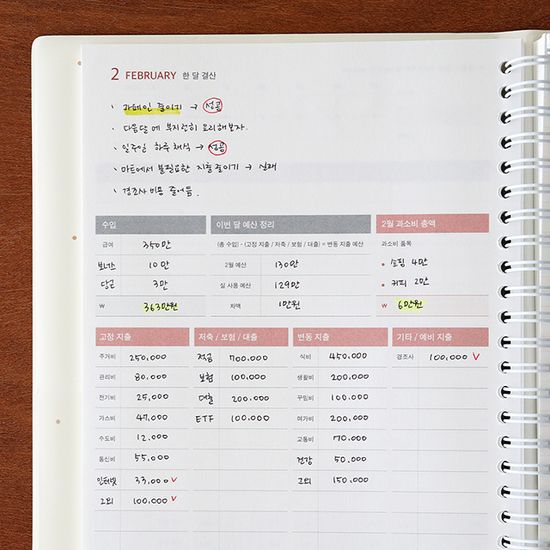 2 FEBRUARY 한 달 결산
· 카페인 줄이기 → 성공
· 다음달에 부지런히 요리해보자.
· 일주일 하루 채식 → 성공
· 마트에서 불필요한 지출 줄이기 → 실패
· 경조사 비용 줄어듦.
수입 이번 달 예산 정리 2월 과소비 총액
급여 350만 (총 수입) - (고정 지출 / 저축 / 보험 / 대출) = 변동 지출 예산 과소비 품목
보너스 10만 2월 예산 130만 • 쇼핑 4만
당근 3만 실 사용 예산 129만 • 커피 2만
₩ 363만원 차액 1만원 ₩ 6만원
고정 지출 저축 / 보험 / 대출 변동 지출 기타 / 예비 지출
주거비 250,000 적금 700,000 식비 450,000 경조사 100,000 ✓
관리비 80,000 보험 100,000 생활비 200,000
전기비 25,000 대출 200,000 꾸밈비 100,000
가스비 47,000 ETF 100,000 여가비 200,000
수도비 12,000 교통비 70,000
통신비 55,000 건강 50,000
인터넷 33,000 ✓ 그외 150,000
그외 100,000 ✓